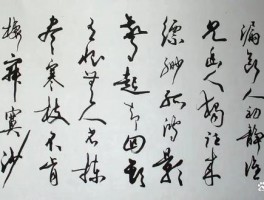 漏断人初静谁
见幽人独往来
缥缈孤鸿影
惊起却回头
有恨无人省拣
尽寒枝不肯
栖寂寞沙